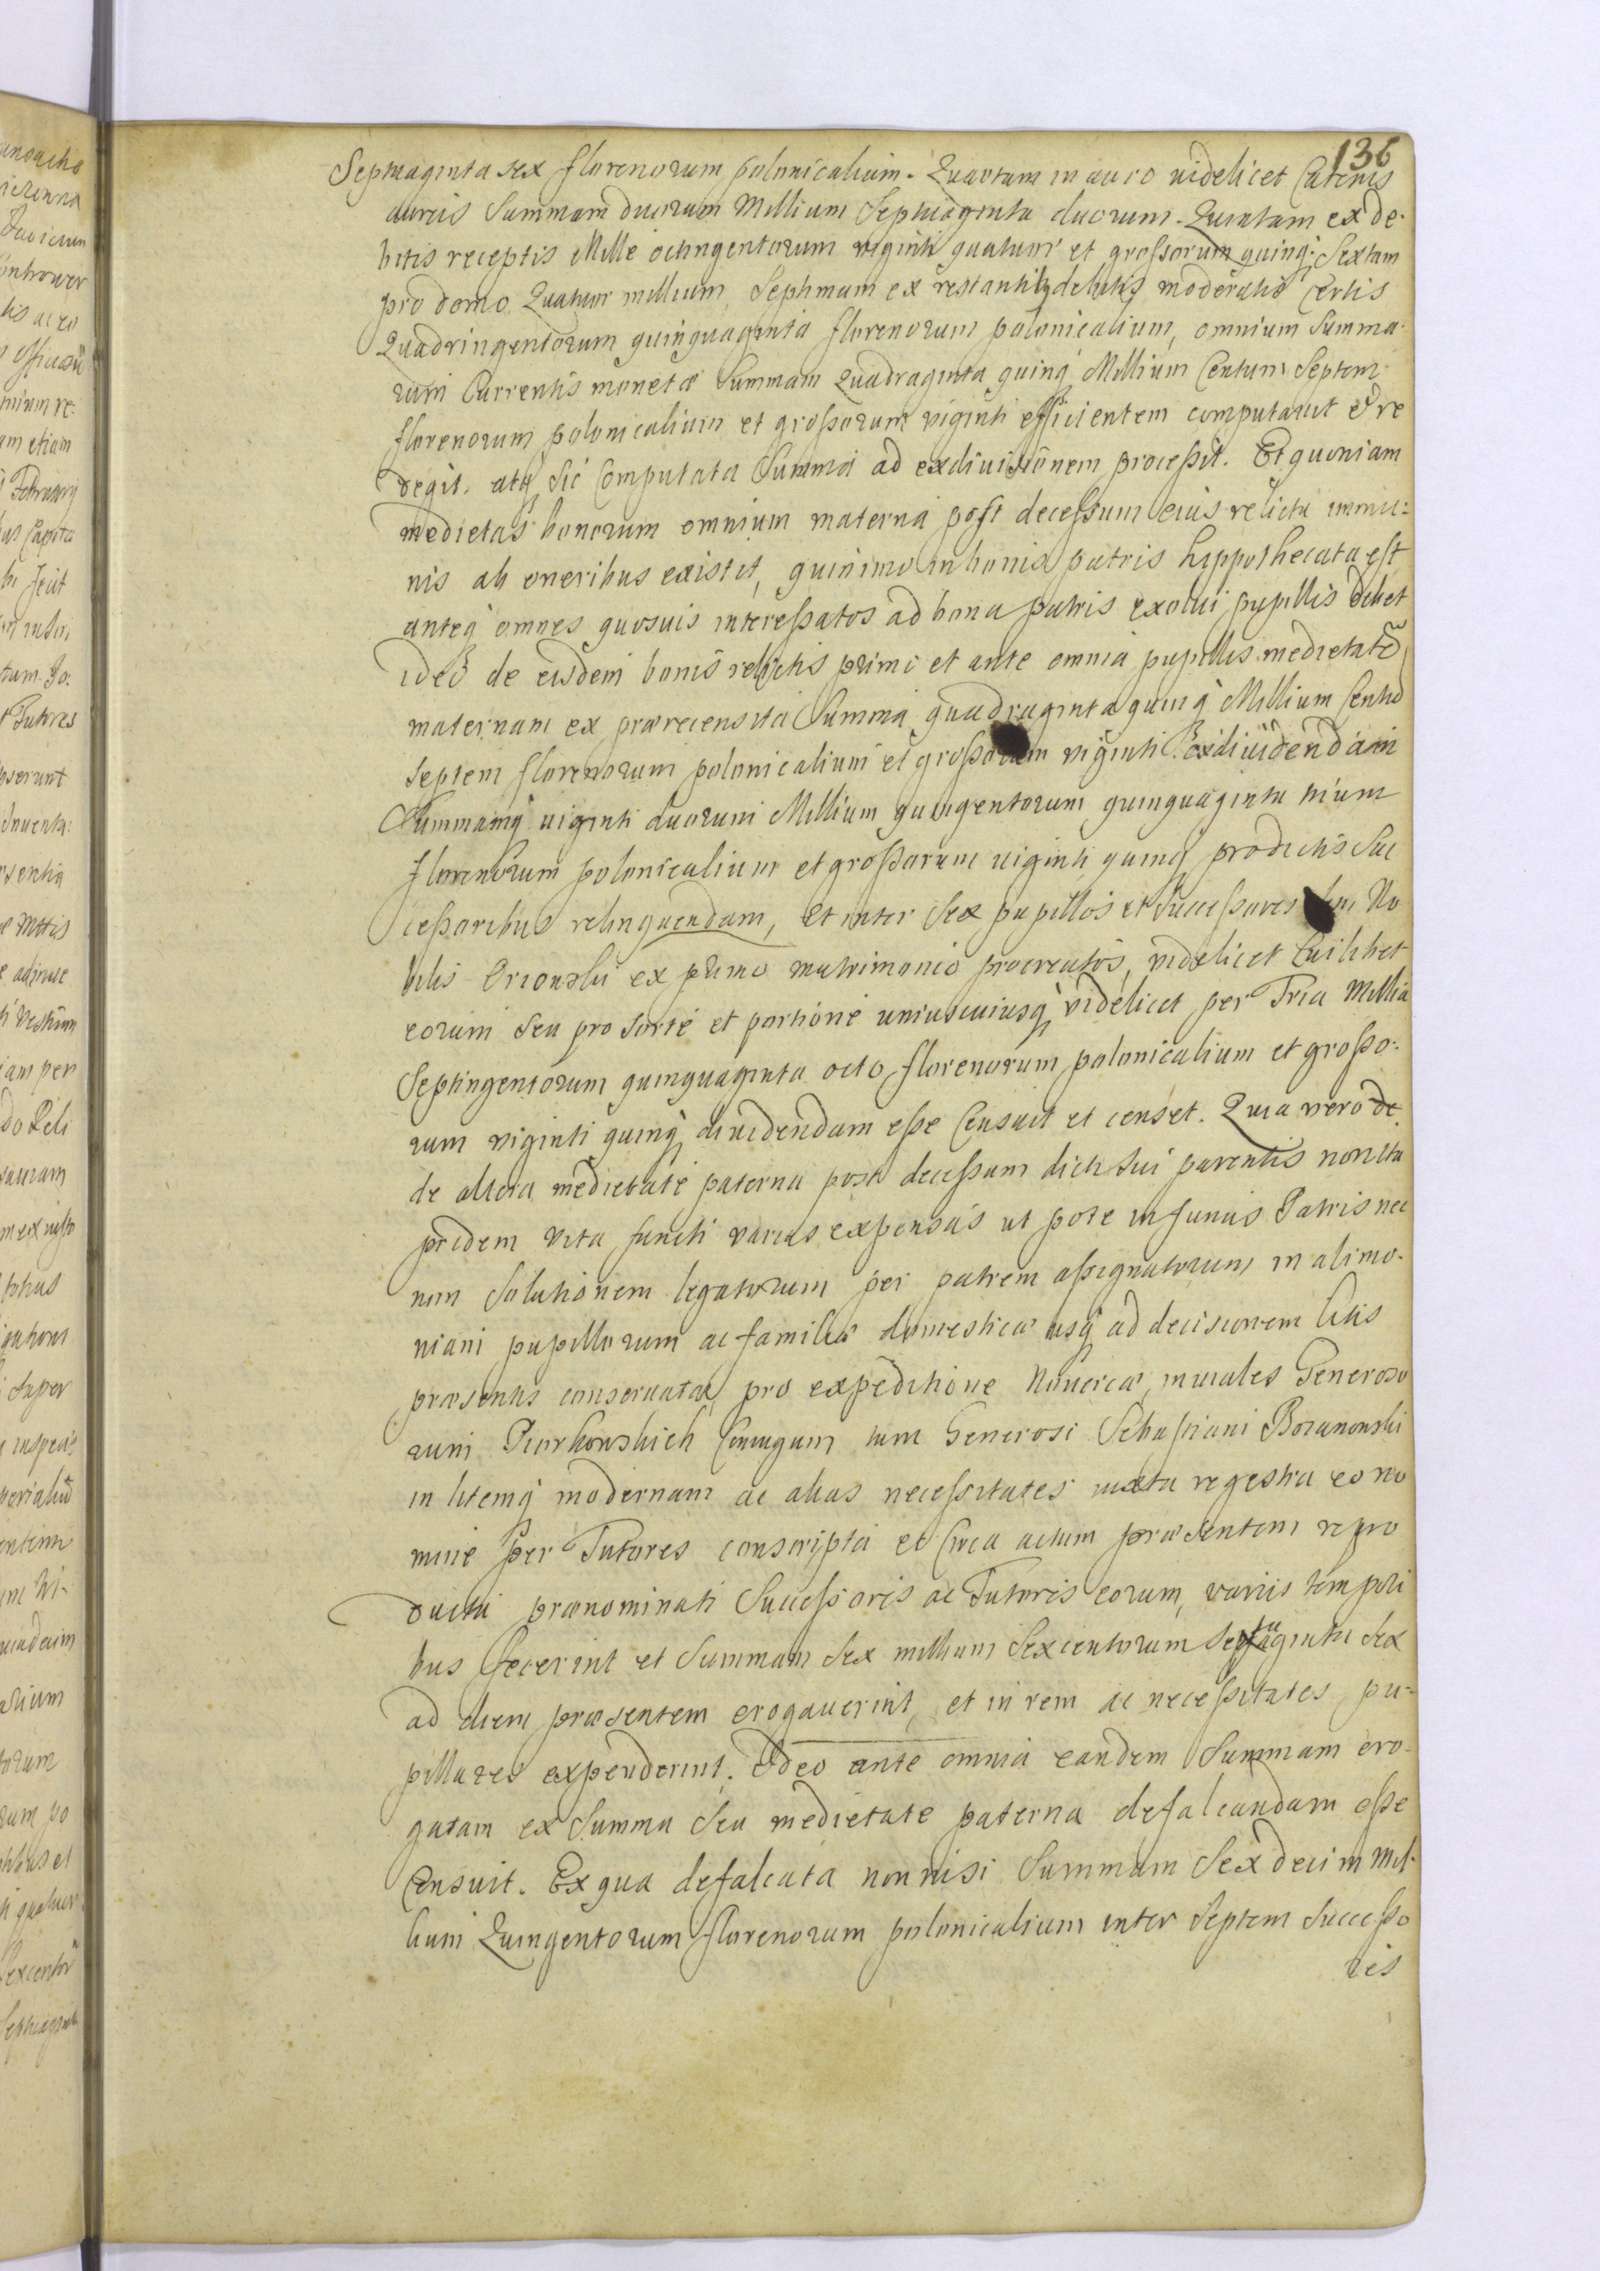 136
Septuaginta sex florenorum polonicalium. Quartam in auro videlicet Catenis
aureis Summam duorum Millium Septuaginta duorum. Quintam ex de-
bitis receptis Mille octingentorum viginti quatuor et grossorum quinq. Sextam
pro domo Quatuor millium, Septimam ex restantib debitis moderatis certis
Quadringentorum quinquaginta florenorum polonicalium, omnium Summa-
rum Currentis monetæ Summam Quadraginta quinq Millium Centum Septem
florenorum polonicalium et grossorum viginti efficientem computavit et re
degit. atq sic Computata Summa ad exdivisionem processit. Et quoniam
medietas bonorum omnium materna post decessum eius relicta immu-
nis ab oneribus existit, quinimo in bonis patris hyppothecata est
anteq omnes quosvis interessatos ad bona patris exolui pupillis debet
ideo de eisdem bonis relictis primo et ante omnia pupillis medietatẽ
maternam ex prærecensita Summa quadraginta quinq Millium Centũ
Septem florenorum polonicalium et grossorum viginti exdividendam
Summamq viginti duorum Millium quingentorum quinquaginta trium
florenorum polonicalium et grossorum viginti quinq prædictis Suc
cessoribus relinquendam, et inter Sex pupillos et Successores olim No
bilis ex primo matrimonio procreatos, videlicet Cuilibet
eorum seu pro sorte et portione uniuscuiusq videlicet per Tria Millia
Septingentorum quinquaginta octo florenorum polonicalium et grosso-
rum viginti quinq dividendam esse Censuit et censet. Quia vero de
de altera medietate paterna post decessum dicti sui parentis non ita
pridem vita functi varias expensas ut pote in funus Patris nec
non Solutionem legatorum per patrem assignatorum in alimo-
niam pupillorum ac familiæ domesticæ usq ad decisionem litis
præsentis conservatæ, pro expeditione Novercæ, inviales Generoso
rum Piorkowskich Coniugum tum Generosi Sebastiani Bozanowski
in litemq modernam ac alias necessitates iuxta regestra eo no
mine per Tutores conscripta et Circa actum præsentem repro
ducta prænominati Successoris ac Tutoris eorum, variis tempori
bus fecerint et Summam Sex millium Sexcentorum Septuaginta Sex
ad diem præsentem erogaverint, et in rem ac necessitates pu-
pillares expenderint. Ideo ante omnia eandem Summam ero-
gatam ex Summa seu medietate paterna defalcandam esse
Censuit. Ex qua defalcata non nisi Summam Sexdecim Mil-
lium Quingentorum florenorum polonicalium inter Septem Successo
res